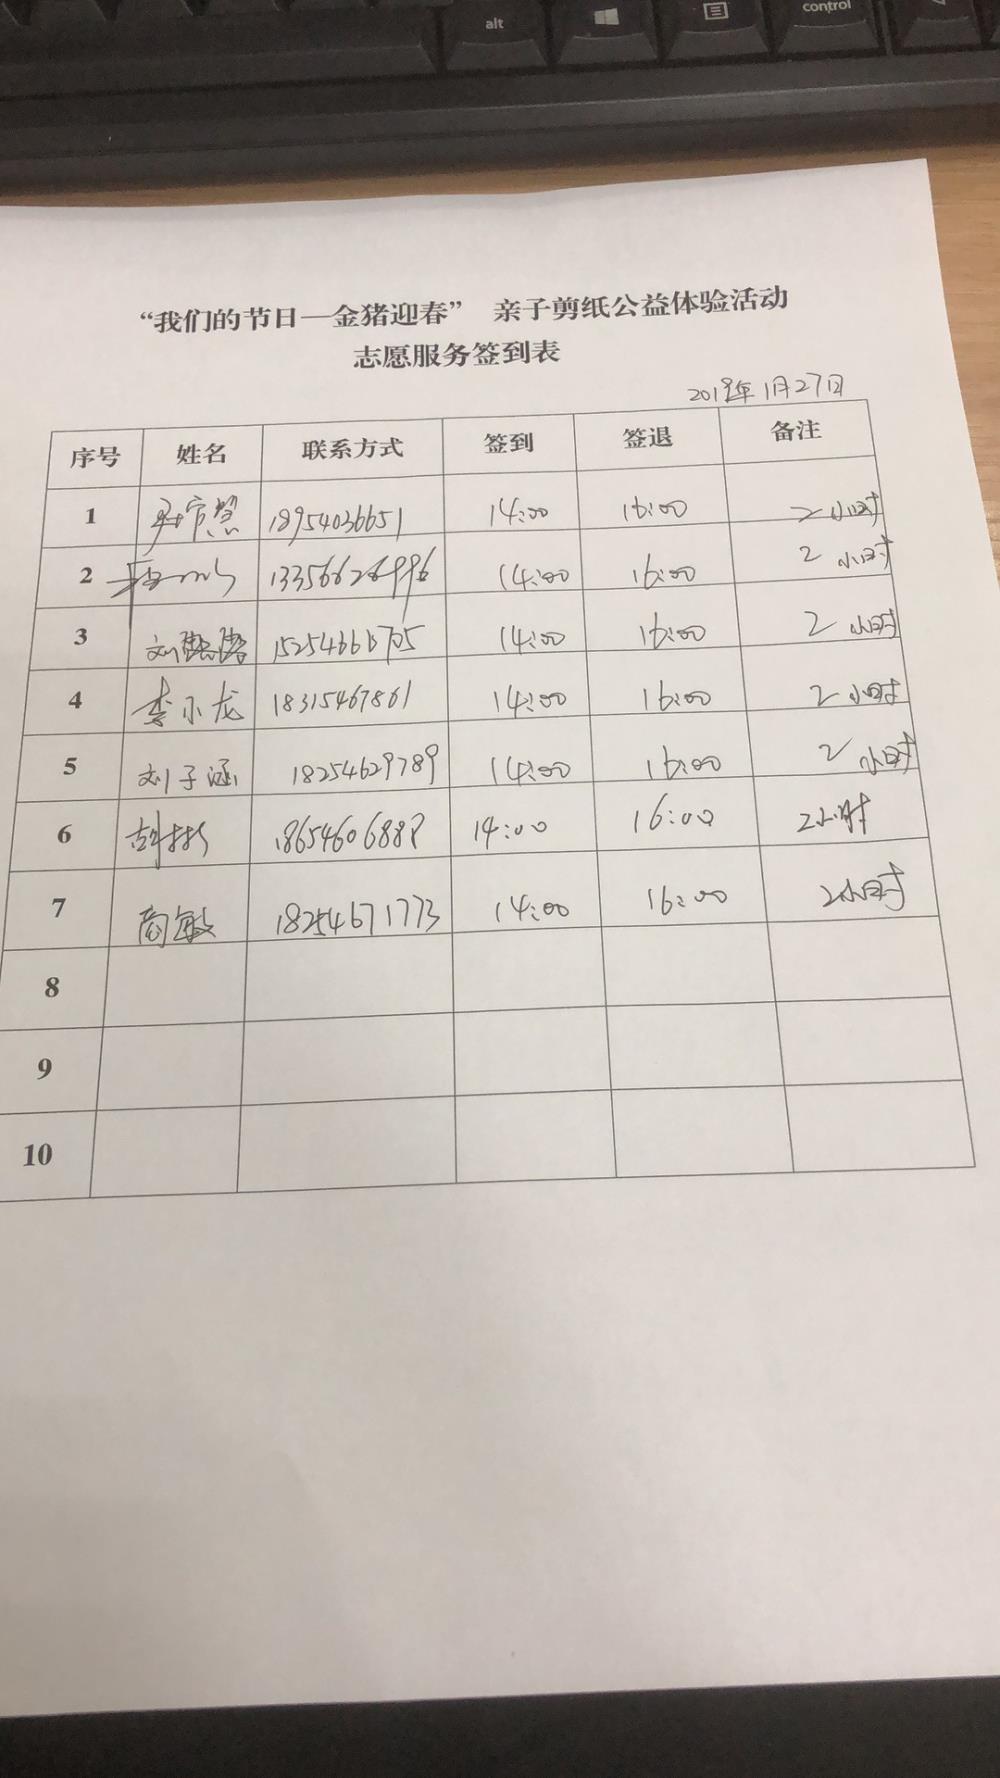 alt
control
“我们的节日—金猪迎春” 亲子剪纸公益体验活动
志愿服务签到表
2019年1月27日
序号 姓名 联系方式 签到 签退 备注
1 18954036651 14:00 16:00 2小时
2 14:00 16:00 2小时
3 刘 14:00 16:00 2小时
4 李小龙 18315467861 14:00 16:00 2小时
5 刘子涵 18254629789 14:00 16:00 2小时
6 18654606888 14:00 16:00 2小时
7 商敏 18254671773 14:00 16:00 2小时
8
9
10